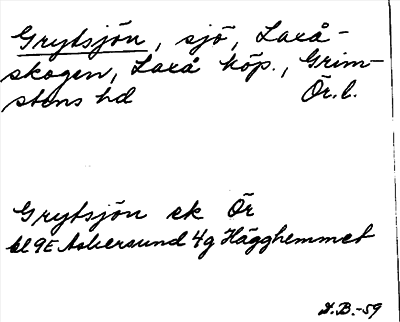 Grytsjön, sjö, Laxå-
skogen, Laxå köp., Grim-
stens hd Ör. l.
Grytsjön ek Ör
bl 9E Askersund 4g Hägghemmet
D.B.-59